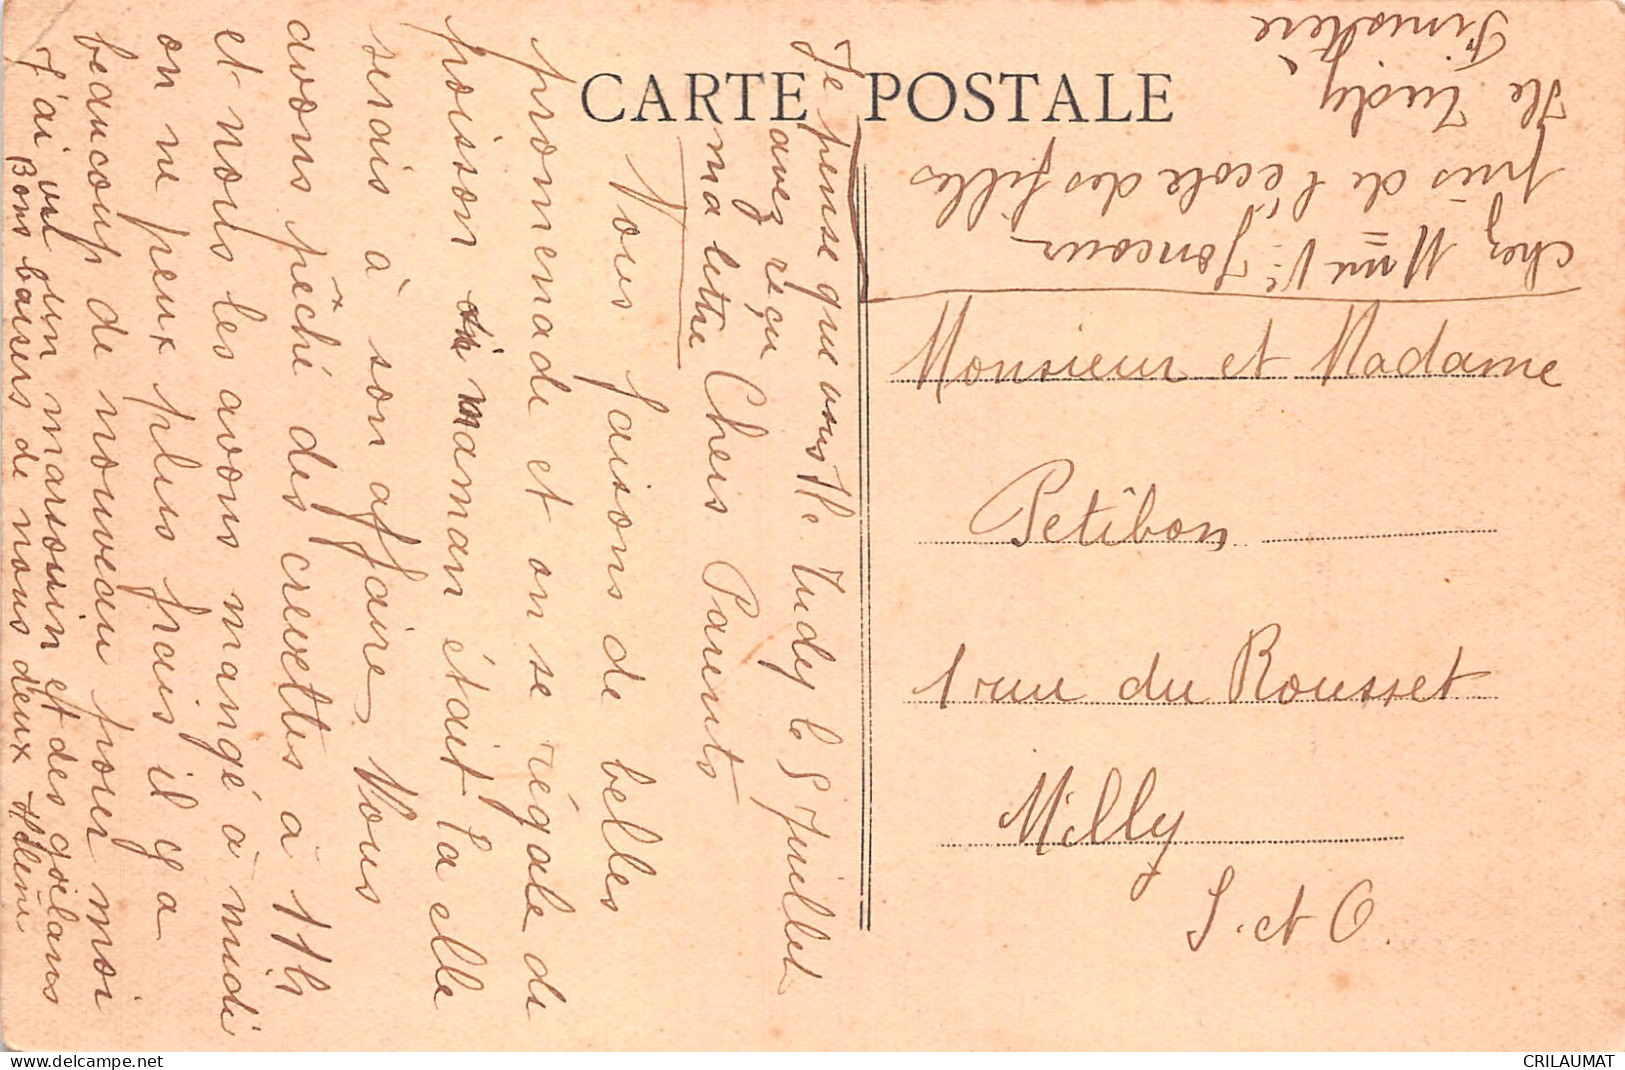 CARTE POSTALE
Je pense que vous
avez reçu
ma lettre
Ile Tudy le 5 Juillet
Chers Parents
Nous faisons de belles
promenade et on se régale de
poisson si maman était la elle
serais à son affaire, Nous
avons pêché des crevettes à 11h
et nous les avons mangé à midi
on ne peux plus frais il y a
beaucoup de nouveau pour moi
J'ai vu un marsouin et des goëlans
Bons baisers de nous deux Hélène
chez Mme Ve Joncour
près de l'école des filles
Ile Tudy
Finistère
Monsieur et Madame
Petibon
1 rue du Rousset
Milly
S. et O.
www.delcampe.net
CRILAUMAT